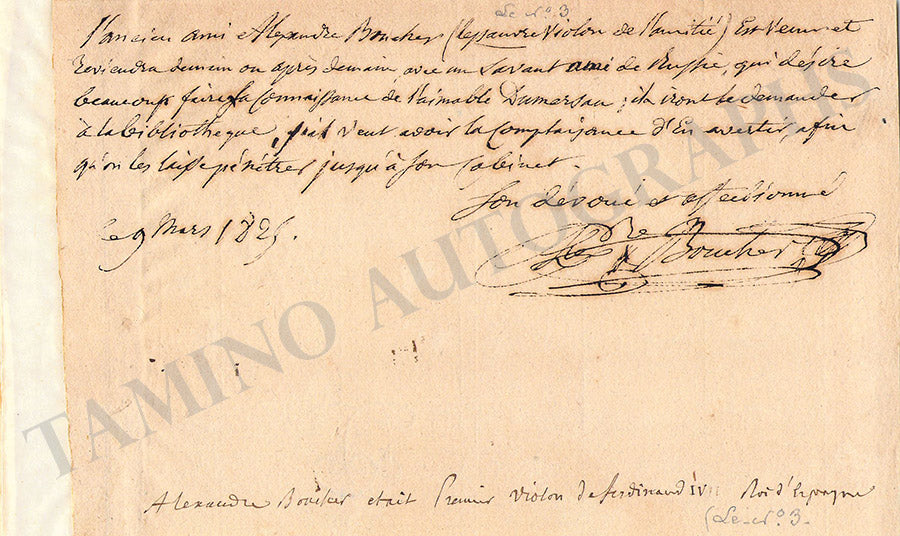 Le N° 3
l'ancien ami Alexandre Boucher (le pauvre Violon de l'amitié) Est venu et
Reviendra demain ou après demain, avec un Savant ami de Russie, qui désire
beaucoup faire la Connaissance de l'aimable Dumersan ; ils iront le demander
à la bibliotheque, s'il veut avoir la Complaisance d'En avertir, afin
qu'on les laisse pénétrer jusqu'à son Cabinet.
Son dévoué et affectionné
le 9 Mars 1825.
Alexdre Boucher
TAMINO AUTOGRAPHS
Alexandre Boucher etait Premier violon de ferdinand Roi d'Espagne
(Le N° 3.